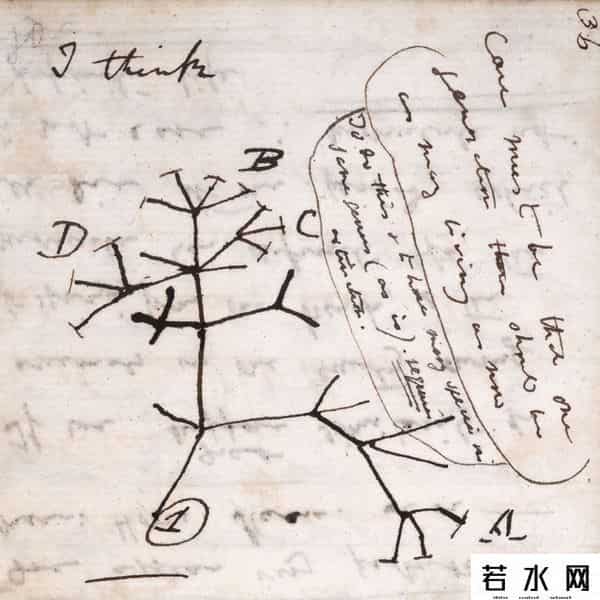 36
I think
Case must be that one
generation then should be
as many living as now
To do this & to have many species in
same genus (as is). requires
extinction.
B
C
D
A
1
若水网